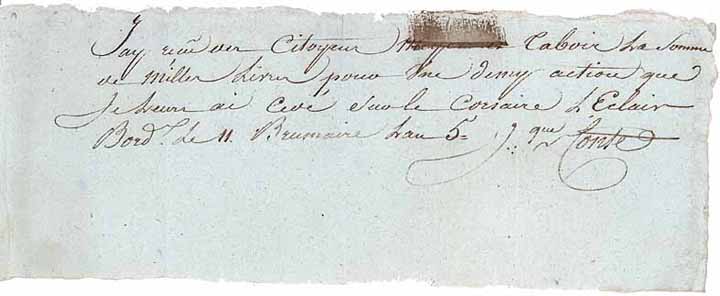 J'ay reçu des Citoyens Taboir La Somme
de mille Livres pour une demy action que
je leurs ai Cedé Sur le Corsaire L'Eclair
Bord.x Le 11 Brumaire L'an 5= J. que Conte